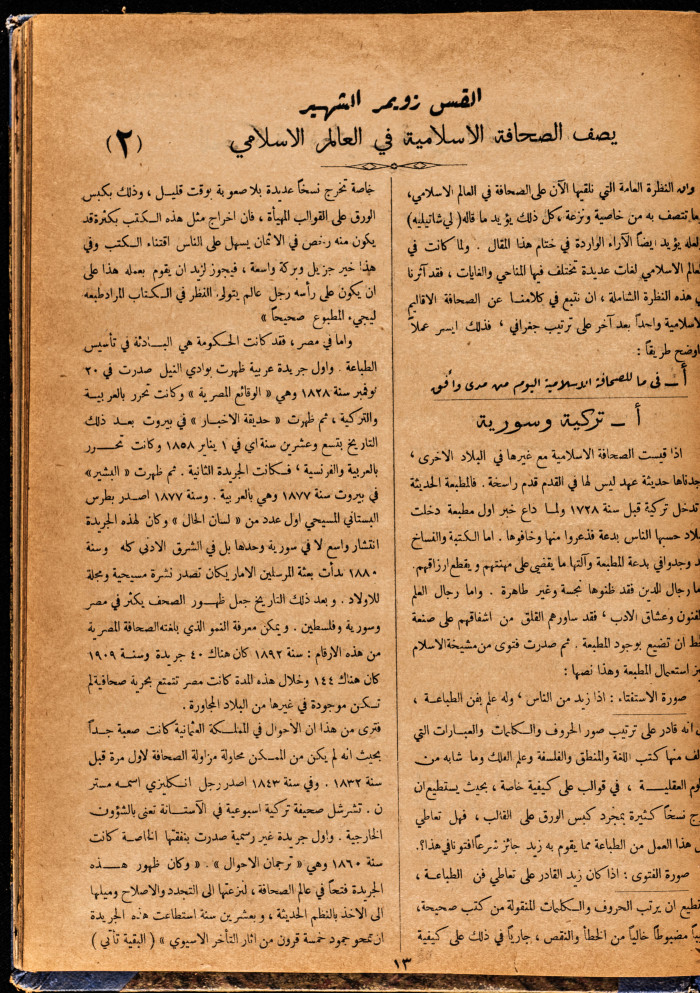 القس زويمر الشهير
يصف الصحافة الاسلامية في العالم الاسلامي
(٢)
وان النظرة العامة التي نلقيها الآن على الصحافة في العالم الاسلامي،
تتصف به من خاصية ونزعة، كل ذلك يؤيد ما قاله (لي شاتيليه)
لعله يؤيد ايضاً الآراء الواردة في ختام هذا المقال . ولما كانت في
العالم الاسلامي لغات عديدة تختلف فيها المناحي والغايات ، فقد آثرنا
هذه النظرة الشاملة ، ان نتبع في كلامنا عن الصحافة الاقاليم
الاسلامية واحداً بعد آخر على ترتيب جغرافي ، فذلك ايسر عملاً
اوضح طريقاً :
أ ــ في ما للصحافة الاسلامية اليوم من مدى وافق
أ ــ تركية وسورية
اذا قيست الصحافة الاسلامية مع غيرها في البلاد الاخرى ،
وجدناها حديثة عهد ليس لها في القدم قدم راسخة . فالمطبعة الحديثة
تدخل تركية قبل سنة ١٧٢٨ ولما ذاع خبر اول مطبعة دخلت
البلاد حسبها الناس بدعة فذعروا منها وخافوها . اما الكتبة والنساخ
وجدوا في بدعة المطبعة وآلتها ما يقضي على مهنتهم ويقطع ارزاقهم.
رجال الدين فقد ظنوها نجسة وغير طاهرة . واما رجال العلم
الفنون وعشاق الادب ، فقد ساورهم القلق من اشفاقهم على صنعة
الخط ان تضيع بوجود المطبعة . ثم صدرت فتوى من مشيخة الاسلام
استعمال المطبعة وهذا نصها :
صورة الاستفتاء : اذا زيد من الناس ، وله علم بفن الطباعة ،
انه قادر على ترتيب صور الحروف والكلمات والعبارات التي
منها كتب اللغة والمنطق والفلسفة وعلم الفلك وما شابه من
العقلية ، في قوالب على كيفية خاصة ، بحيث يستطيع ان
نسخاً كثيرة بمجرد كبس الورق على القالب ، فهل تعاطي
هذا العمل من الطباعة مما يقوم به زيد جائز شرعاً افتونا في هذا؟.
صورة الفتوى : اذا كان زيد القادر على تعاطي فن الطباعة ،
ان يرتب الحروف والكلمات المنقولة من كتب صحيحة،
مضبوطاً خالياً من الخطأ والنقص ، جارياً في ذلك على كيفية
خاصة تخرج نسخاً عديدة بلا صعوبة بوقت قليل ، وذلك بكبس
الورق على القوالب المهيأة ، فان اخراج مثل هذه الكتب بكثرة قد
يكون منه رخص في الاثمان يسهل على الناس اقتناء الكتب وفي
هذا خير جزيل وبركة واسعة ، فيجوز لزيد ان يقوم بعمله هذا على
ان يكون على رأسه رجل عالم يتولى النظر في الكتاب المراد طبعه
ليجيء المطبوع صحيحاً »
واما في مصر ، فقد كانت الحكومة هي البادئة في تأسيس
الطباعة . واول جريدة عربية ظهرت بوادي النيل صدرت في ٢٠
نوفمبر سنة ١٨٢٨ وهي « الوقائع المصرية » وكانت تحرر بالعربية
والتركية ، ثم ظهرت « حديقة الاخبار » في بيروت بعد ذلك
التاريخ بتسع وعشرين سنة اي في ١ يناير ١٨٥٨ وكانت تحرر
بالعربية والفرنسية ، فكانت الجريدة الثانية . ثم ظهرت « البشير»
في بيروت سنة ١٨٧٧ وهي بالعربية . وسنة ١٨٧٧ اصدر بطرس
البستاني المسيحي اول عدد من « لسان الحال » وكان لهذه الجريدة
انتشار واسع لا في سورية وحدها بل في الشرق الادنى كله وسنة
١٨٨٠ بدأت بعثة المرسلين الاماريكان تصدر نشرة مسيحية ومجلة
للاولاد . وبعد ذلك التاريخ جعل ظهور الصحف يكثر في مصر
وسورية وفلسطين . ويمكن معرفة النمو الذي بلغته الصحافة المصرية
من هذه الارقام : سنة ١٨٩٢ كان هناك ٤٠ جريدة وسنة ١٩٠٩
كان هناك ١٤٤ وخلال هذه المدة كانت مصر تتمتع بحرية صحافية لم
تكن موجودة في غيرها من البلاد المجاورة .
فترى من هذا ان الاحوال في المملكة العثمانية كانت صعبة جداً
بحيث انه لم يكن من الممكن محاولة مزاولة الصحافة لاول مرة قبل
سنة ١٨٣٢ . وفي سنة ١٨٤٣ اصدر رجل انكليزي اسمه مستر
ن . تشرشل صحيفة تركية اسبوعية في الآستانة تعنى بالشؤون
الخارجية . واول جريدة غير رسمية صدرت بنفقتها الخاصة كانت
سنة ١٨٦٠ وهي « ترجمان الاحوال » . « وكان ظهور هذه
الجريدة فتحاً في عالم الصحافة ، لنزعتها الى التجدد والاصلاح وميلها
الى الاخذ بالنظم الحديثة ، وبعشرين سنة استطاعت هذه الجريدة
ان تمحو جمود خمسة قرون من اثار التأخر الاسيوي » ( البقية تأتي )
١٣